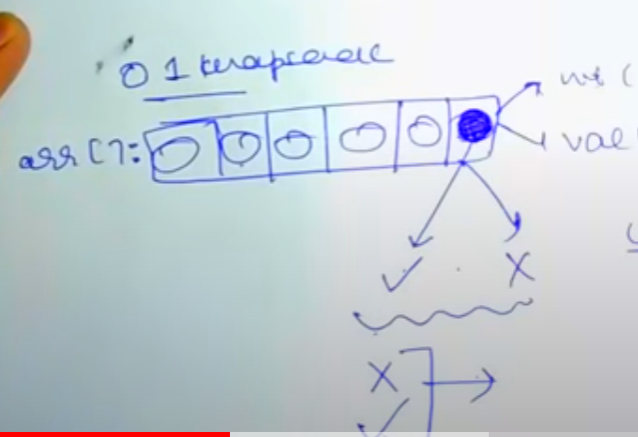 0 1 knapsack
arr[]:
wt (
val
✓ X
X
✓